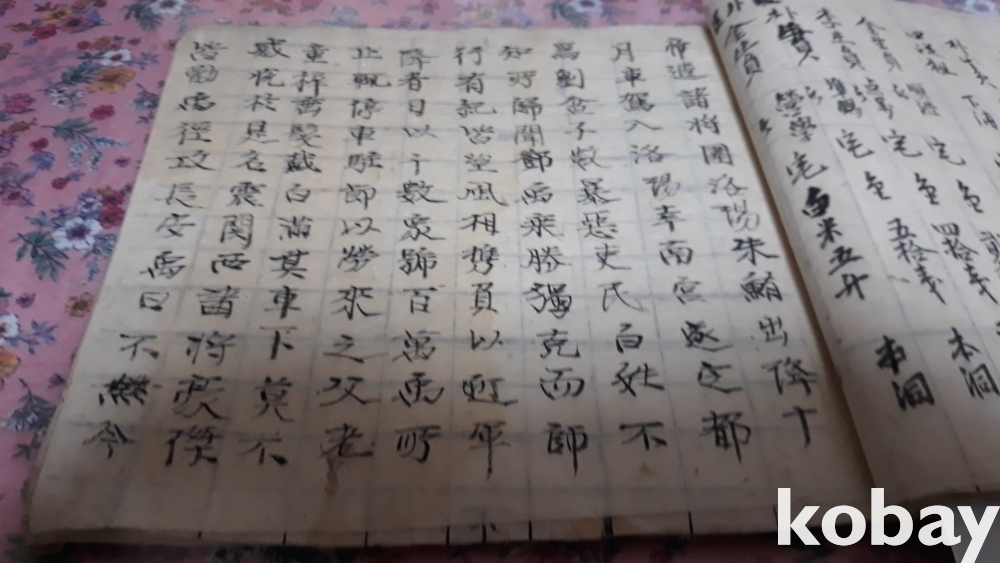 宅 仝 四拾戔 本洞
宅 仝 五拾戔
宅 白米五斗 本洞
帝遣諸將圍洛陽朱鮪出降十
月車駕入洛陽幸南宮遂定都
焉劉盆子數暴惡吏民百姓不
知所歸聞鄧禹乘勝獨克而師
行有紀皆望風相携負以迎軍
降者日以千數衆號百萬禹所
止輒停車駐節以勞來之父老
童穉垂髮戴白滿其車下莫不
感悅於是名震関西諸將豪傑
皆勸禹徑攻長安禹曰不然今
kobay